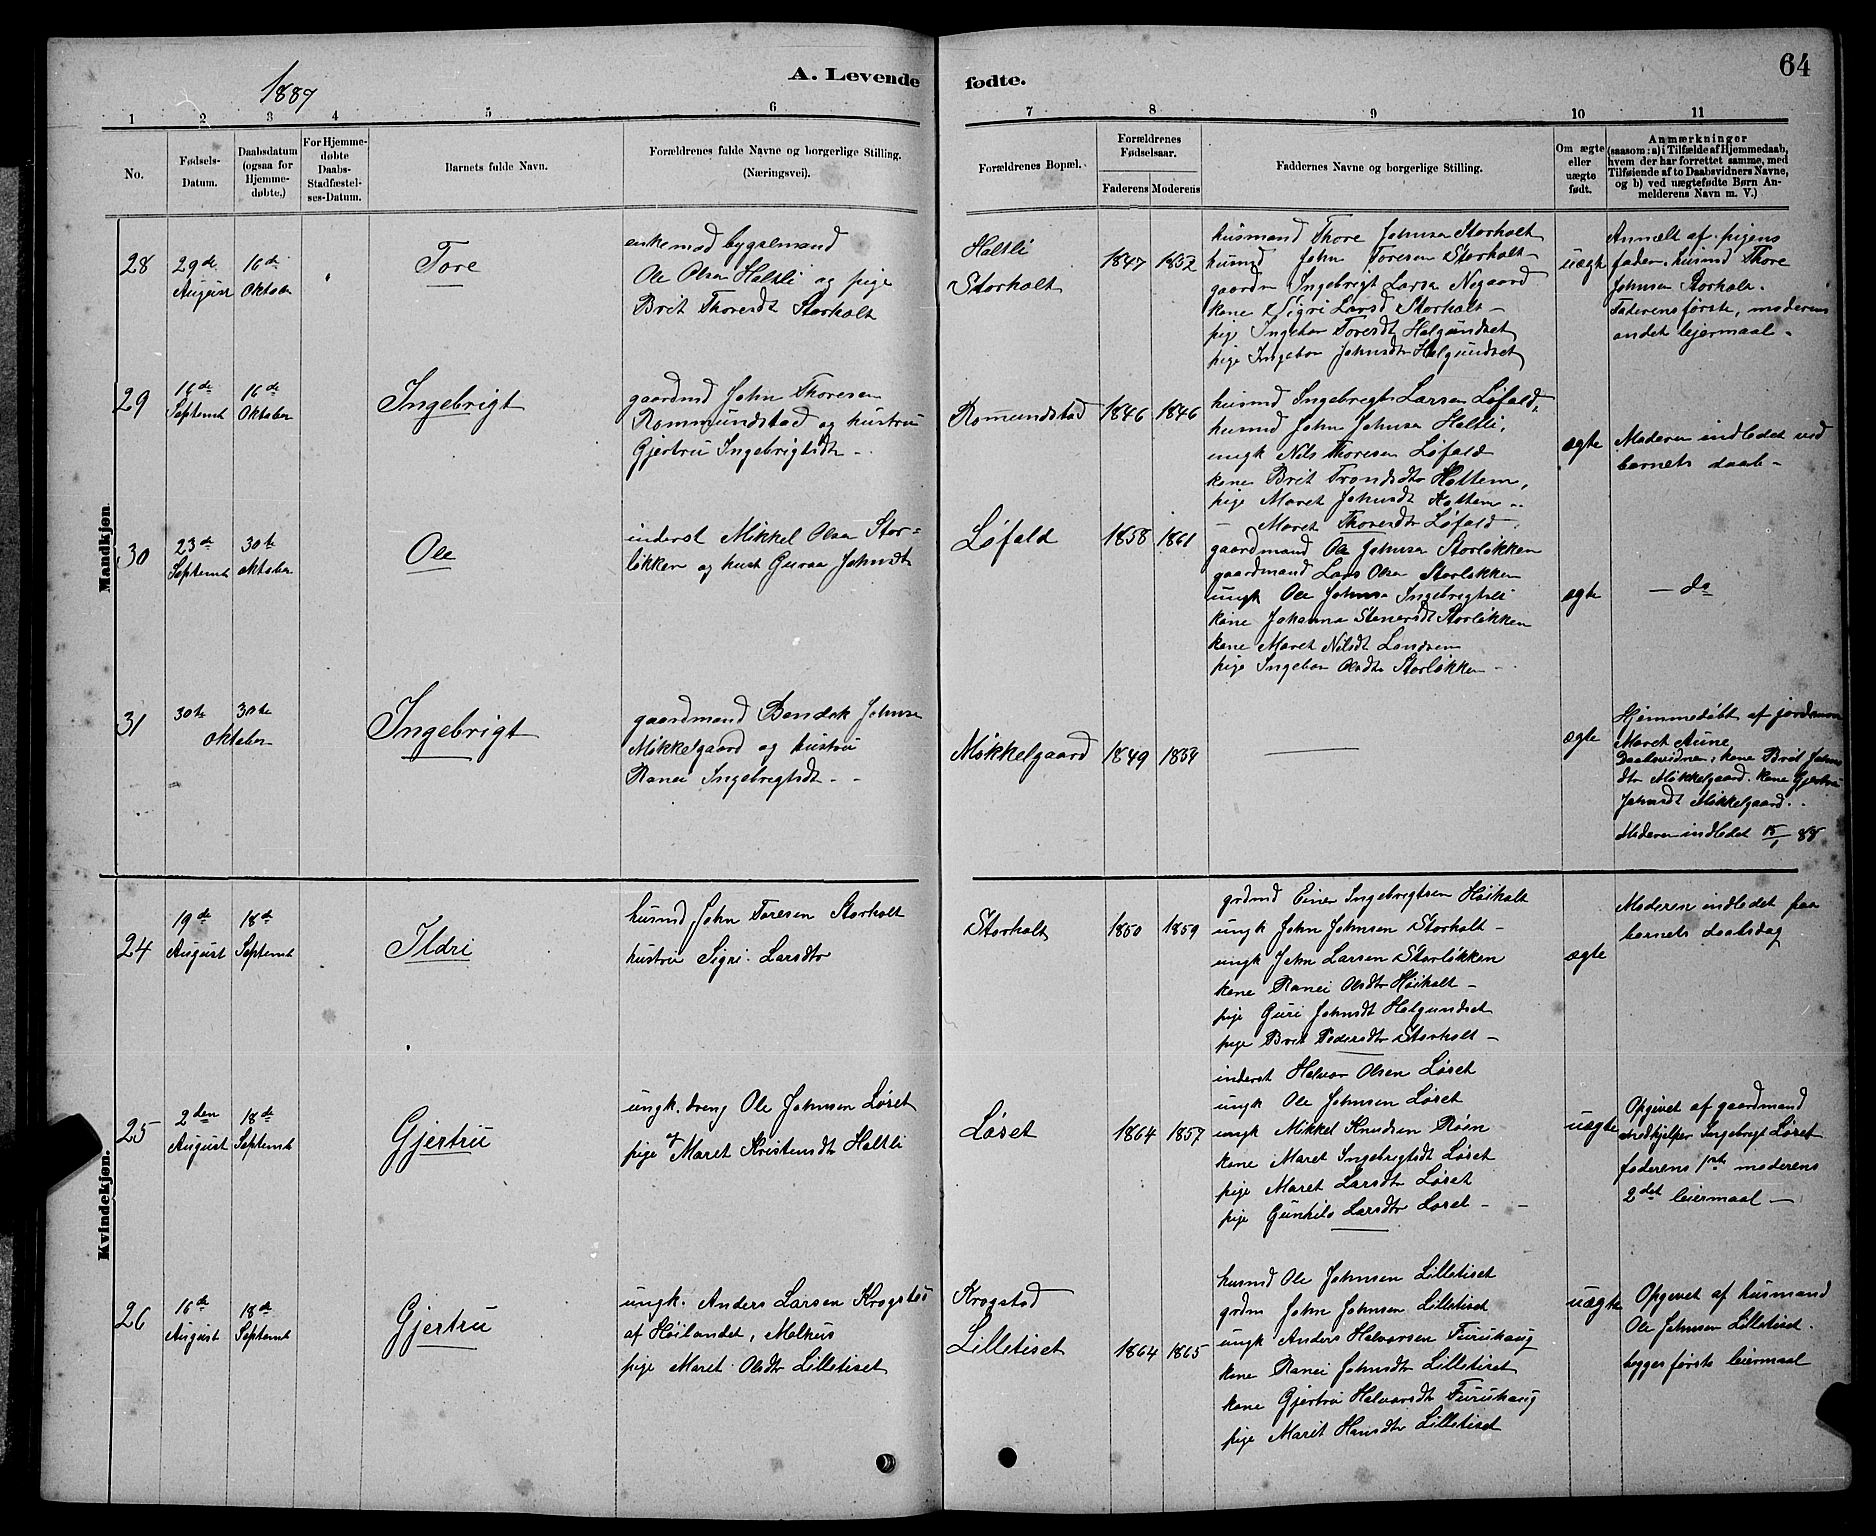 1887
A. Levende
fødte.
64
1 2 3 4 5 6
7 8 9 10 11
No.
Fødsels-
Datum.
Daabsdatum
(ogsaa for
Hjemme-
døbte.)
For Hjemme-
døbte
Daabs-
Stadfæstel-
ses-Datum.
Barnets fulde Navn.
Forældrenes fulde Navne og borgerlige Stilling.
(Næringsvei).
Forældrenes Bopæl.
Forældrenes
Fødselsaar.
Faderens Moderens
Faddernes Navne og borgerlige Stilling.
Om ægte
eller
uægte
født.
Anmærkninger
(saasom: a) i Tilfælde af Hjemmedaab,
hvem der har forrettet samme, med
Tilføiende af to Daabsvidners Navne,
og b) ved uægtefødte Børn An-
melderens Navn m. V.)
Mandkjøn.
28
29de
August
16de
Oktober
Tore
enkemad bygselmand
Ole Olsen Haltli og pige
Brit Thoresdt Storholt
Haltli
Storholt
1847 1852
husmand Thore Johnsen Storholt
husmd John Toresen Storholt
gaardm Ingebrigt Larsen Nygaard
kone Sigri Larsd Storholt -
pige Ingebor Toresdt Halgundset
pige Ingebor Johnsdtr Halgundset
uægt
Anmelt af pigens
fader, husmd Thore
Johnsen Storholt.
Faderens første, moderens
andet leiermaal.
29
16de
Septemt
16de
Oktober
Ingebrigt
gaardmd John Thoresen
Rommundstad og hustru
Gjertru Ingebrigtsdtr
Romundstad
1846 1846
husmd Ingebrigt Larsen Løfald,
husmd John Johnsen Haltli,
ungk Nils Thoresen Løfald
kone Brit Trondsdtr Hattem,
pige Maret Johnsdt Hattem
- Maret Thoresdtr Løfald.
ægte
Moderen indledet ved
barnets daab -
30
23de
Septemt
30te
oktober
Ole
inderst Mikkel Olsen Stor=
løkken og hust Guroa Johnsdt
Løfald
1858 1861
gaardmand Ole Johnsen Storløkken
gaardmand Lars Olsen Storløkken
ungk Ole Johnsen Ingebrigtsli
kone Johanna Stenersdt Storløkken
kone Maret Nilsdt Landsem
pige Ingebor Olsdtr Storløkken
ægte
- do
31
30te 30te
Oktober
Ingebrigt
gaardmand Bendik Johnsen
Mikkelgaard og hustru
Ranei Ingebrigtsdt
Mikkelgaard
1849 1854
ægte
Hjemmedøbt af jordmor
Maret Aune
Daabsvidner: kone Brit Johns
dtr Mikkelgaard. kone Gjertru
Johnsdt Mikkelgaard.
Moderen indledet 15/1 88
Kvindekjøn.
24
19de
August
18de
Septemt
Ildri
husmd John Toresen Storholt
hustru Sigri Larsdtr
Storholt
1850 1859
grdmd Einer Ingebrigtsen Høiholt
ungk John Johnsen Storholt -
ungk John Larsen Storløkken
kone Ranei Olsdtr Høiholt -
pige Guri Johnsdt Halgundset
pige Brit Pedersdtr Storholt -
ægte
Moderen indledet paa
barnets daabsdag
25
2den
August
18de
Septemt
Gjertru
ungk. dreng Ole Johnsen Løset
pige Maret Kristensdtr Haltli
Løset
1864 1857
inderst Halvor Olsen Løset
ungk Ole Johnsen Løset
ungk Mikkel Knudsen Røen
kone Maret Ingebrigtsdt Løset
pige Maret Larsdtr Løset
pige Gunhild Larsdtr Løset
uægte
Opgivet af gaardmand
medhjelper Ingebrigt Løset
faderens 1ste moderens
2det leiermaal -
26
16de
August
18de
Septemt
Gjertru
ungk. Anders Larsen Krogstad
af Høilandet, Melhus
pige Maret Olsdtr Lilletiset
Krogstad
Lilletiset
1864 1865
husmd Ole Johnsen Lilletiset
grdm John Johnsen Lilletiset
ungk Anders Halvorsen Furuhaug
kone Ranei Johnsdtr Lilletiset
kone Gjertru Halvorsdt Furuhaug
pige Marit Hansdtr Lilletiset
uægte
Opgivet af husmand
Ole Johnsen Lilletiset.
begges første leiermaal